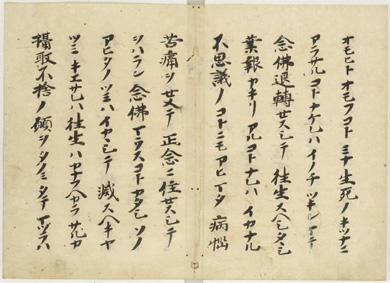 オモヒトオモフコトミナ生死ノキツナニ
アラサルコトナケレハイノチツキンマテ
念佛退轉セスシテ往生スヘシタヽシ
業報カキリアルコトナレハイカナル
不思議ノコトニモアヒマタ病惱
苦痛ヲセメテ正念ニ住セスシテ
ヲハラン念佛マウスコトカタシソノ
アヒタノツミハイカヽシテ滅スヘキヤ
ツミキエサレハ往生ハカナフヘカラサルカ
攝取不捨ノ願ヲタノミタテマツラハ